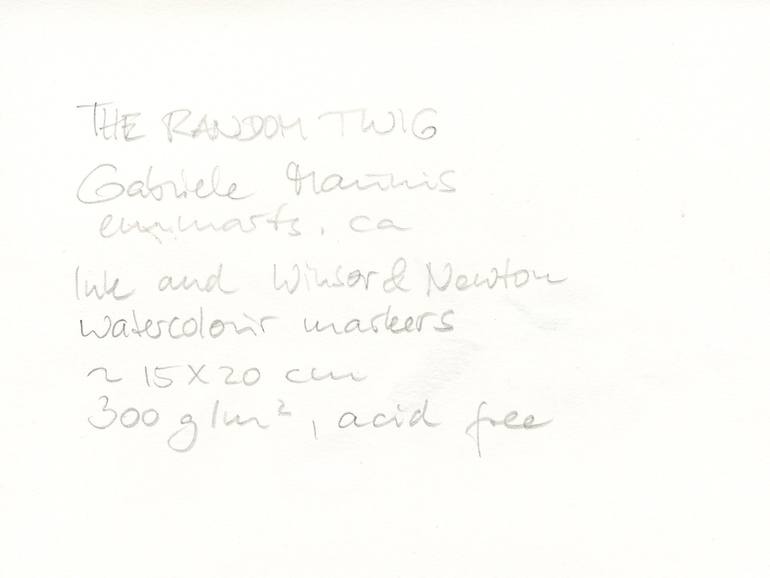 THE RANDOM TWIG
Gabriele
Ink and Winsor & Newton
watercolour markers
~ 15 X 20 cm
300 g/m², acid free